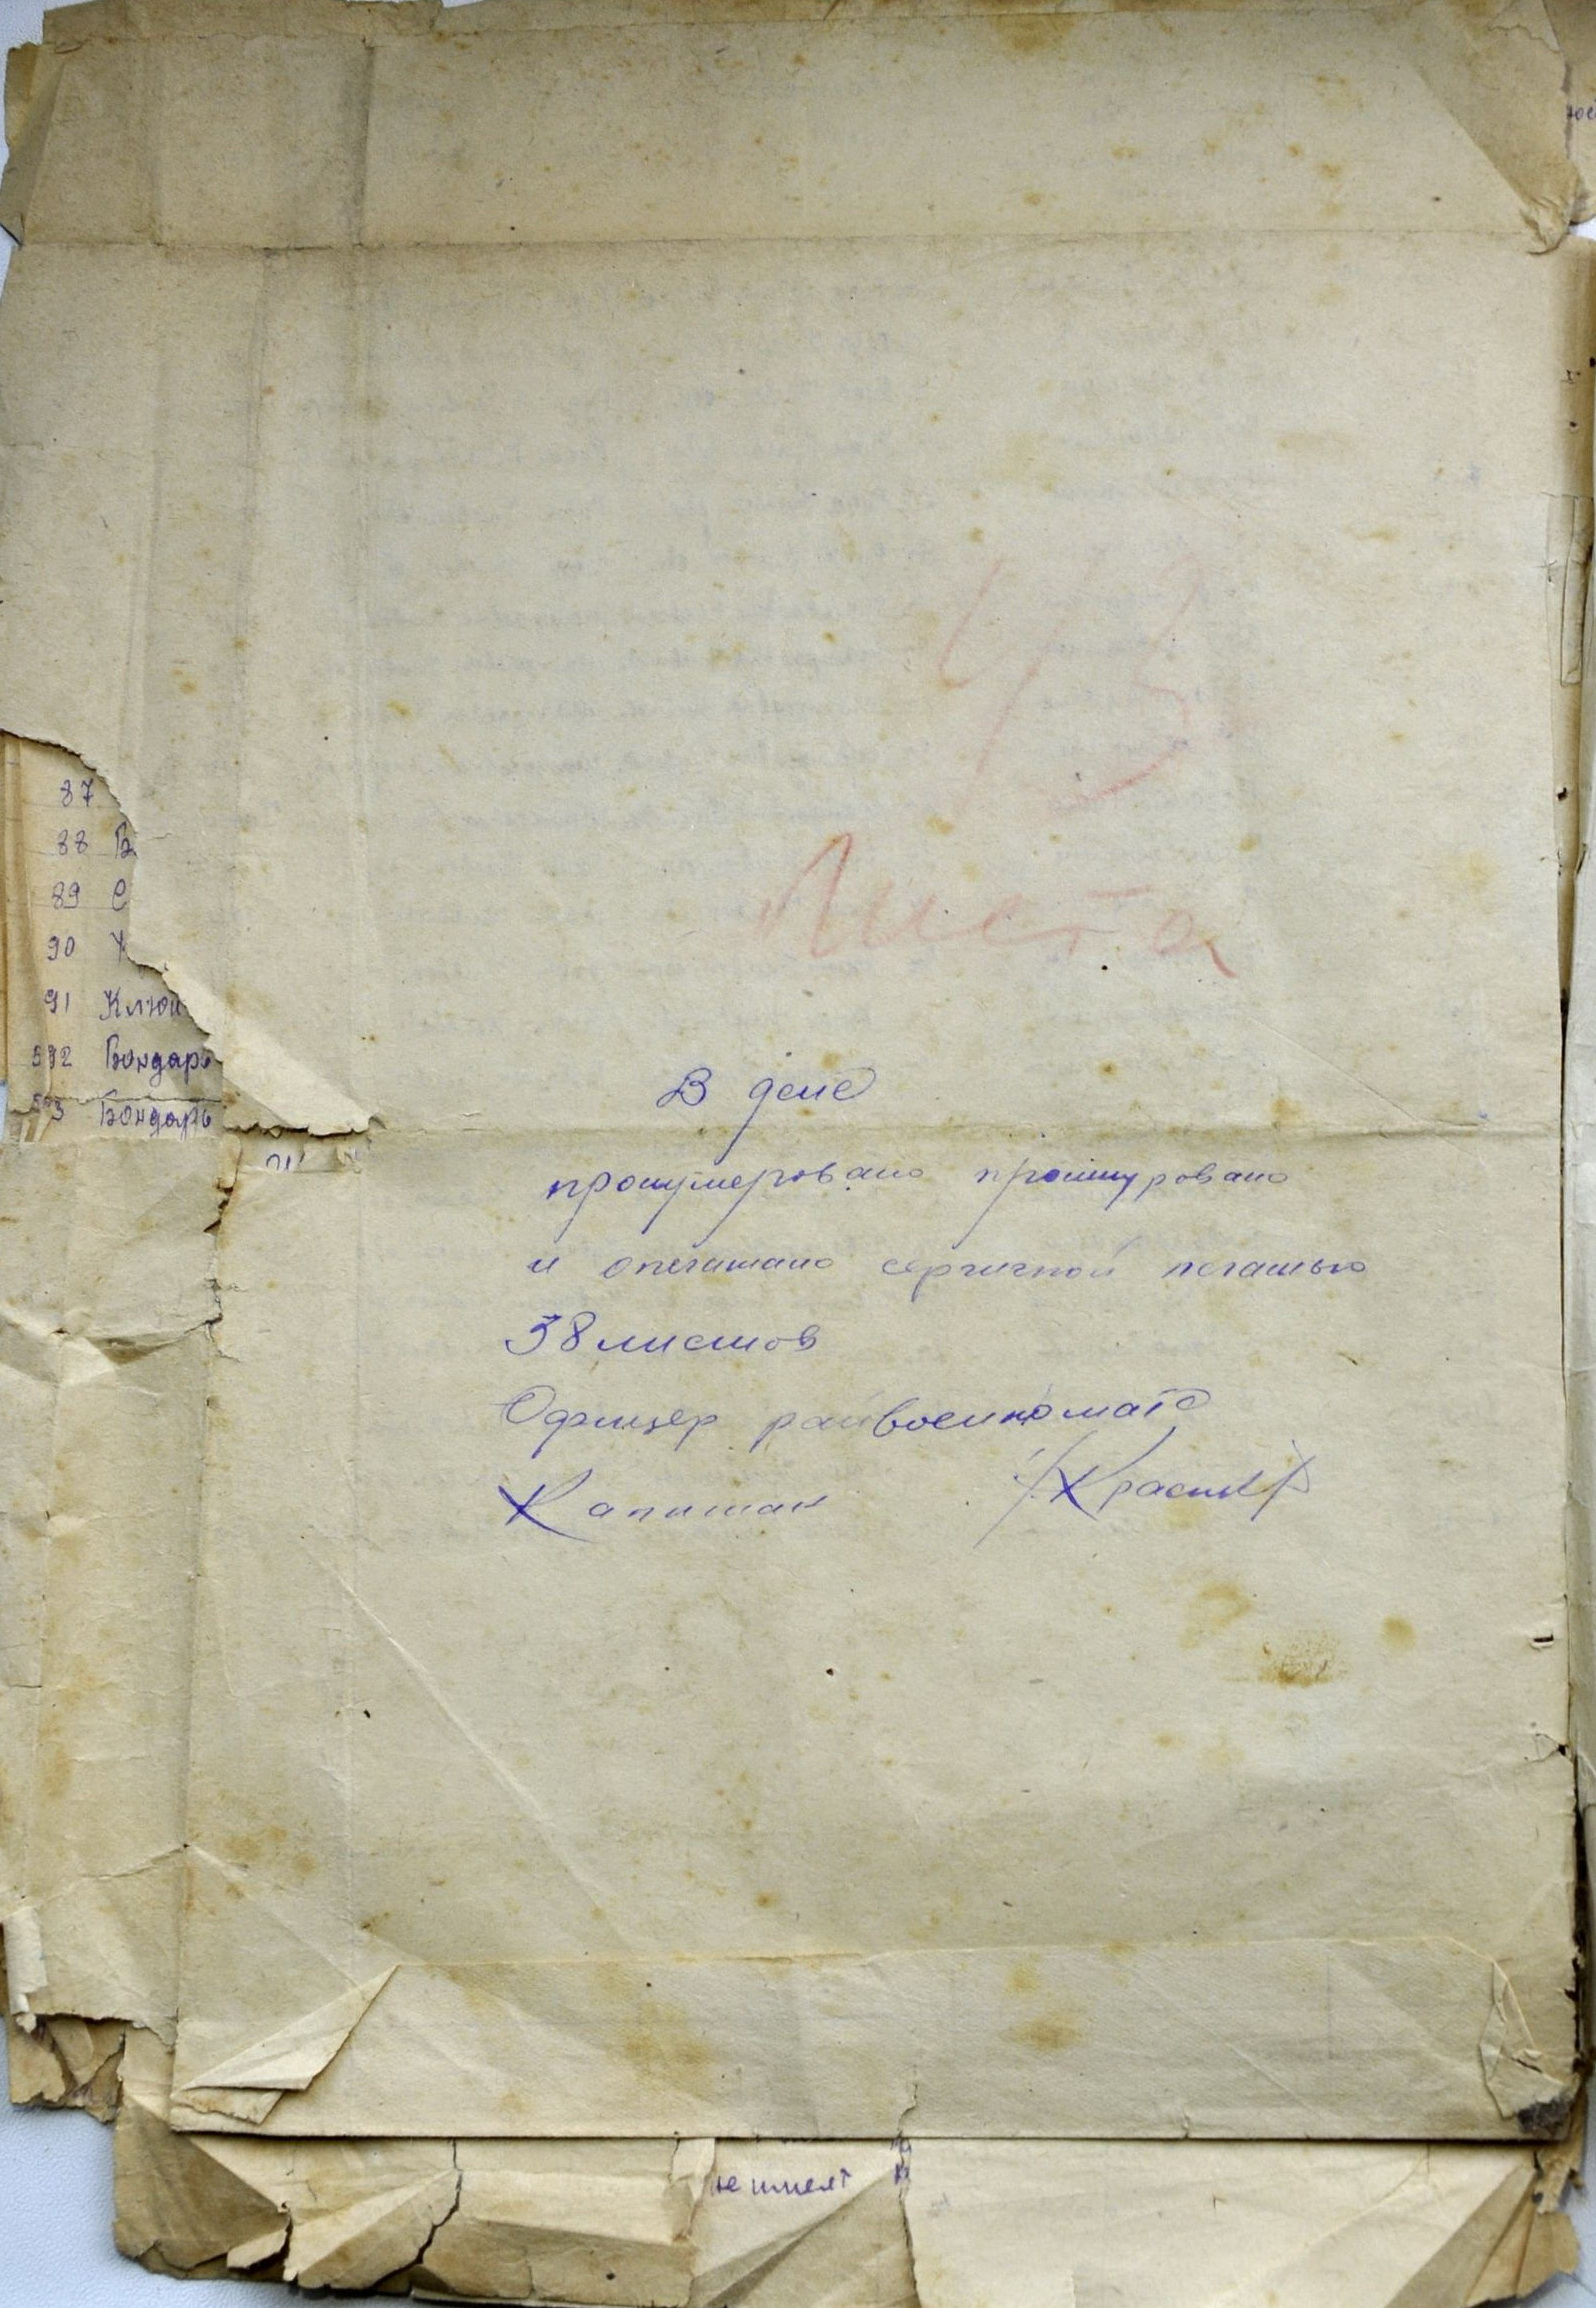 43
Листа
87
88 Б
89 С
90
91 Клюй
592 Бондарь
593 Бондарь
В деле
пронумеровано прошнуровано
и опечатано сургучной печатью
38 листов
Офицер райвоенкомата
Капитан /Краснов/
не имеет